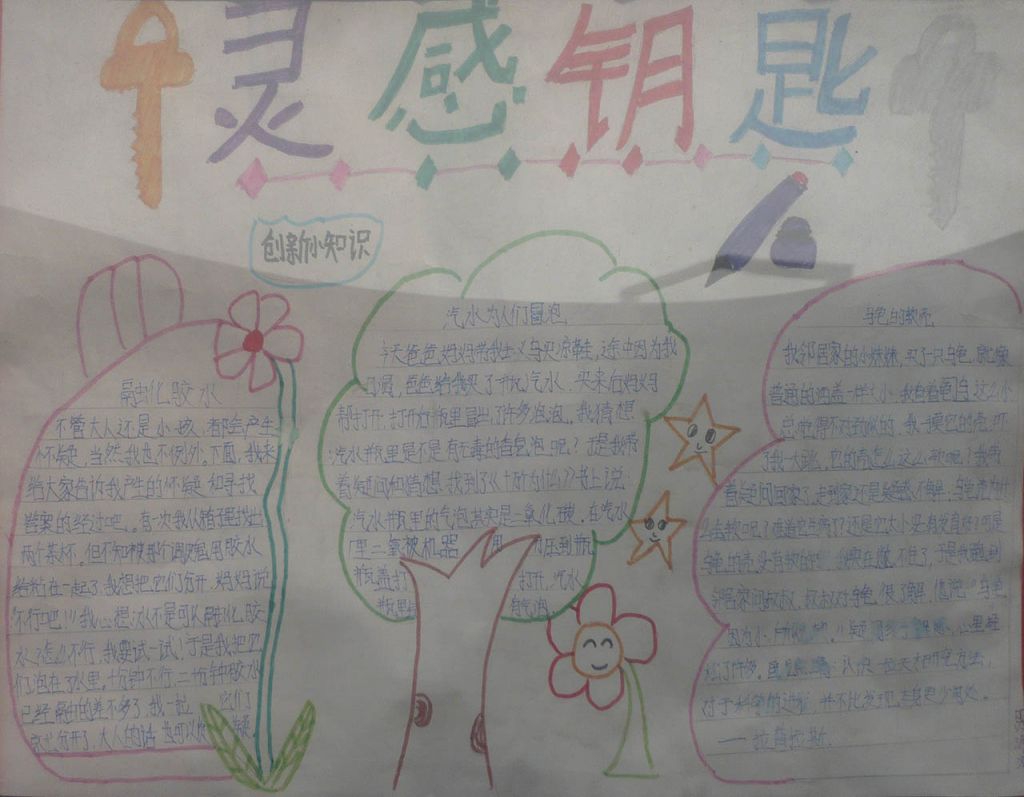 灵感钥匙
创新小知识
融化胶水
不管大人还是小孩,都会产生
怀疑,当然我也不例外。下面,我来
给大家告诉我产生的怀疑和寻找
答案的经过吧。有一次我从箱里找出
两个茶杯。但不知被那个调皮鬼用胶水
给粘在一起了,我想把它们分开,妈妈说
不行吧!!!我心想:水不是可以融化胶
水,怎么不行,我要试一试!于是我把它
们泡在了水里。十分钟不行,二十分钟胶水
已经融的差不多了,我一拉 它们
分开了,大人的话
汽水为人们冒泡
今天爸爸,妈妈带我去义乌买凉鞋,途中因为我
口渴,爸爸给我买了一瓶汽水,买来后妈妈
帮打开,打开后瓶里冒出了许多泡泡,我猜想
汽水瓶里是不是有无毒的香皂泡呢?于是我带
着疑问和猜想,找到了《十万个为什么》书上说:
汽水瓶里的气泡其实是二氧化碳,在汽水
里二氧被机器 用 力压到瓶
瓶盖打 打开,汽水
瓶里
乌龟的教师
我邻居家的小妹妹,买了一只乌龟,就像
普通的酒盖一样大小,我自看见这么小
总觉得不对劲似的,我一摸它的壳,吓
了我一大跳,它的壳怎么这么软呢?我带
着疑问回家了,走到家还是疑惑不解,乌龟为什
么会软呢?难道它生病了?还是它太小没有发育好?可是
乌龟的壳没有软的呀!我实在
邻居家问叔叔,叔叔对乌龟很了解,他说:“乌龟
因为小,所以 心里轻
松了许多。 认识一位天才研究方法,
对于科学的进步,并不比发现本身更少用处。
——拉普拉斯